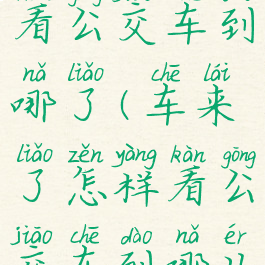 看公交车到
nǎ liǎo chē lái
哪了(车来
liǎo zěn yàng kàn gōng
了怎样看公
jiāo chē dào nǎ ér